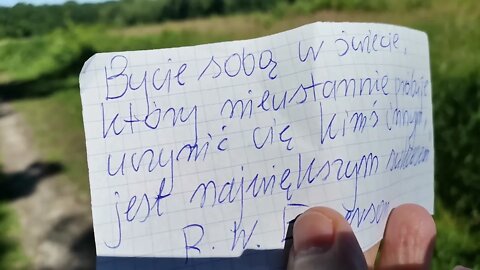 Bycie sobą w świecie,
który nieustannie próbuje
uczynić cię kimś innym,
jest największym sukcesem
R. W. E